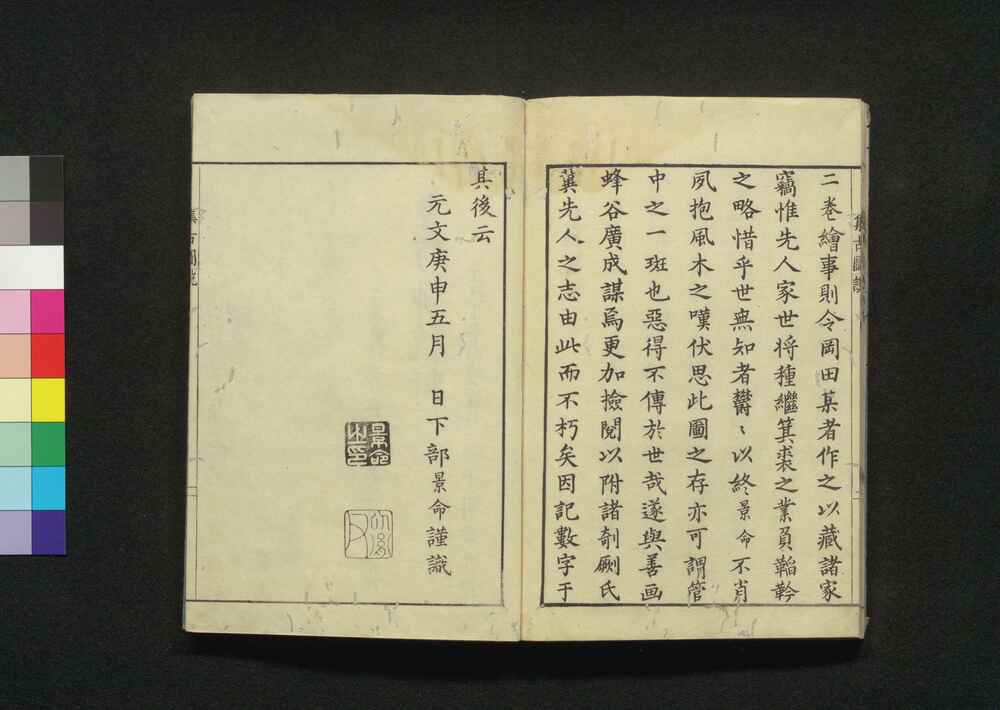 二卷繪事則令岡田某者作之以藏諸家
竊惟先人家世将種繼箕裘之業負鞱鈐
之略惜乎世無知者欝〻以終景命不肖
夙抱風木之嘆伏思此圖之存亦可謂管
中之一斑也惡得不傳於世哉遂與善画
蜂谷廣成謀焉更加撿閱以附諸剞劂氏
冀先人之志由此而不朽矣因記數字于
其後云
元文庚申五月　日下部景命謹識
景命
之印
集古圖說